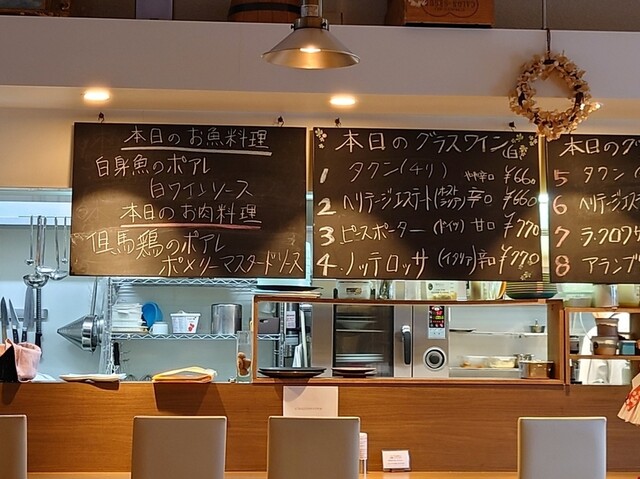 本日のお魚料理
白身魚のポアレ
白ワインソース
本日のお肉料理
但馬鶏のポアレ
ポメリーマスタードソース
本日のグラスワイン(白)
1 タクン(チリ) やや辛口 ¥660
2 ヘリテージエステート(オーストラリア) 辛口 ¥660
3 ピースポーター (ドイツ) 甘口 ¥770
4 ノッテロッサ (イタリア)辛口 ¥770
本日のグ
5 タクン
6 ヘリテージエステ
7 ラ・クロワ
8 アランブ